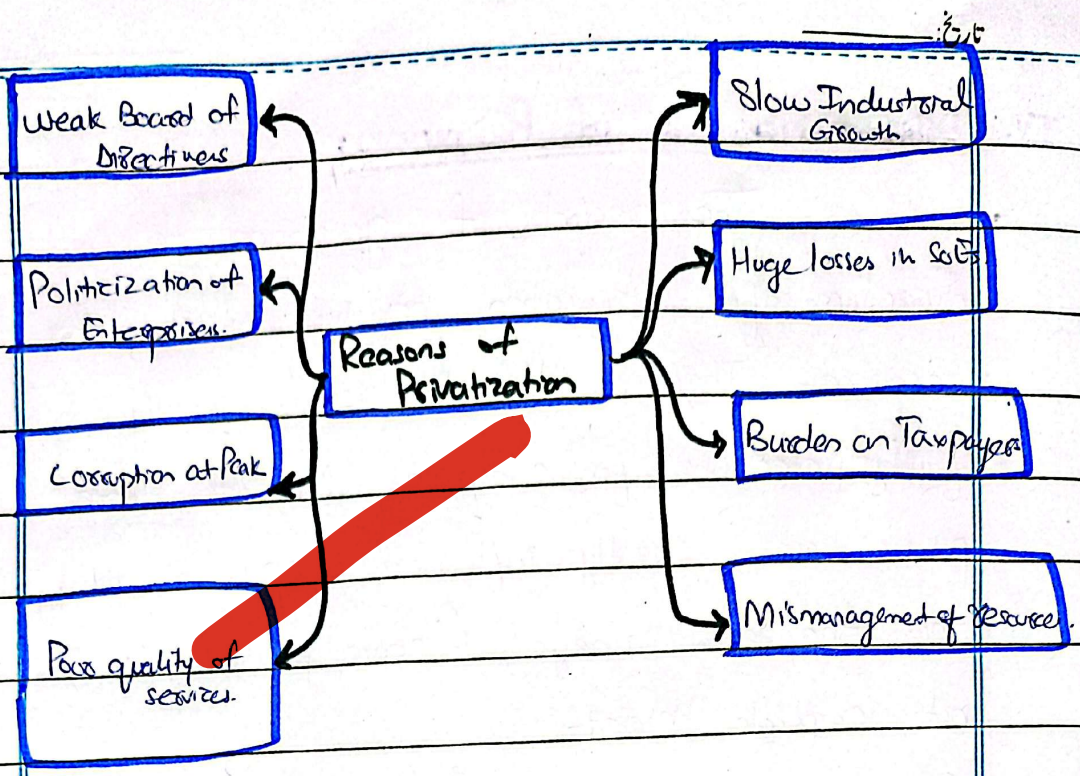 تاریخ:
Weak Board of
Directivers
Politicization of
Enterprises.
Corruption at Peak
Poor quality of
services.
Reasons of
Privatization
Slow Industoral
Growth
Huge losses in SoEs
Burden on Taxpayers
Mismanagement of resources.